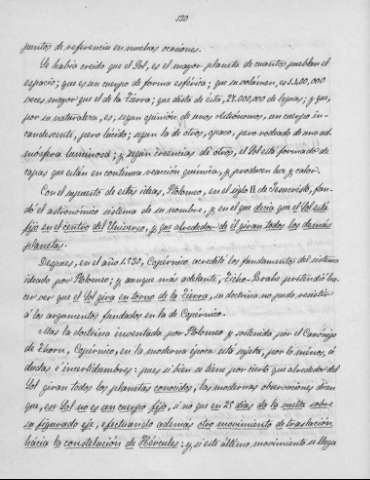 130
puntos de referencia en muchas ocasiones.
Se había creido que el Sol, es el mayor planeta de cuantos pueblan el
espacio; que es un cuerpo de forma esférica; que su volúmen, es 1.400,000
veces mayor que el de la Tierra; que dista de ésta, 27.000,000 de leguas; y que,
por su naturaleza, es, segun opinión de unos astrónomos, un cuerpo in-
candescente, pero lúcido; segun la de otros, opaco, pero rodeado de una at-
mósfera luminosa; y, segun creencias de otros, el Sol está formado de
capas que están en continua reacción química, y producen luz y calor.
Con el supuesto de estas ideas, Ptolomeo, en el siglo II de Jesucristo, fun-
dó el astronómico sistema de su nombre, y en el que decía que el Sol está
fijo en el centro del Universo, y que alrededor de él giran todos los demás
planetas.
Despues, en el año 1530, Copérnico, acreditó los fundamentos del sistema
ideado por Ptolomeo; y aunque más adelante, Ticho-Brahe pretendió ha-
cer ver que el Sol gira en torno de la Tierra, su doctrina no pudo resistir
á los argumentos fundados en la de Copérnico.
Mas la doctrina inventada por Ptolomeo y sostenida por el Canónigo
de Thorn, Copérnico, en la moderna época está sujeta, por lo menos, á
dudas é incertidumbres: pues si bien se tiene por cierto que alrededor del
Sol giran todos los planetas conocidos, las modernas observaciones dicen
que, en Sol no es un cuerpo fijo, si no que en 25 días da la vuelta sobre
su figurado eje, efectuando además otro movimiento de traslación
hácia la constelación de Hércules: y, si este último movimiento se llega